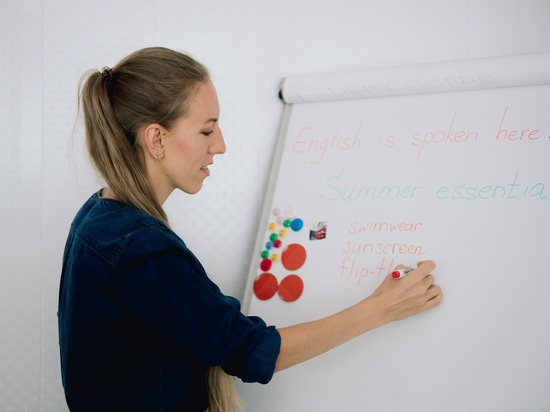 English is spoken here
Summer essential
swimwear
sunscreen
flip-fl